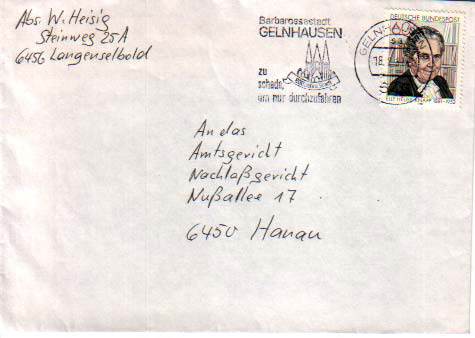 Abs. W. Heisig
Steinweg 25A
6456 Langenselbold
Barbarossastadt
GELNHAUSEN
zu
schade,
um nur durchzufahren
GELNHAUSEN
18.
DEUTSCHE BUNDESPOST
ELLY HEUSS-KNAPP 1881-1952
An das
Amtsgericht
Nachlaßgericht
Nußallee 17
6450 Hanau